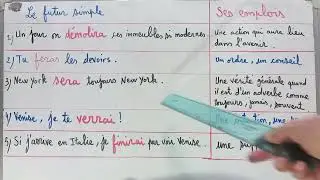 Le futur simple
Ses emplois
1) Un jour on démolira ces immeubles si modernes.
Une action qui aura lieu
dans l'avenir.
2) Tu feras les devoirs.
un ordre, un conseil
3) New York sera toujours New York.
Une vérité générale quand
il est d'un adverbe comme
toujours, jamais, souvent
4) Venise, je te verrai !
5) Si j'arrive en Italie, je finirai par voir Venise.
une